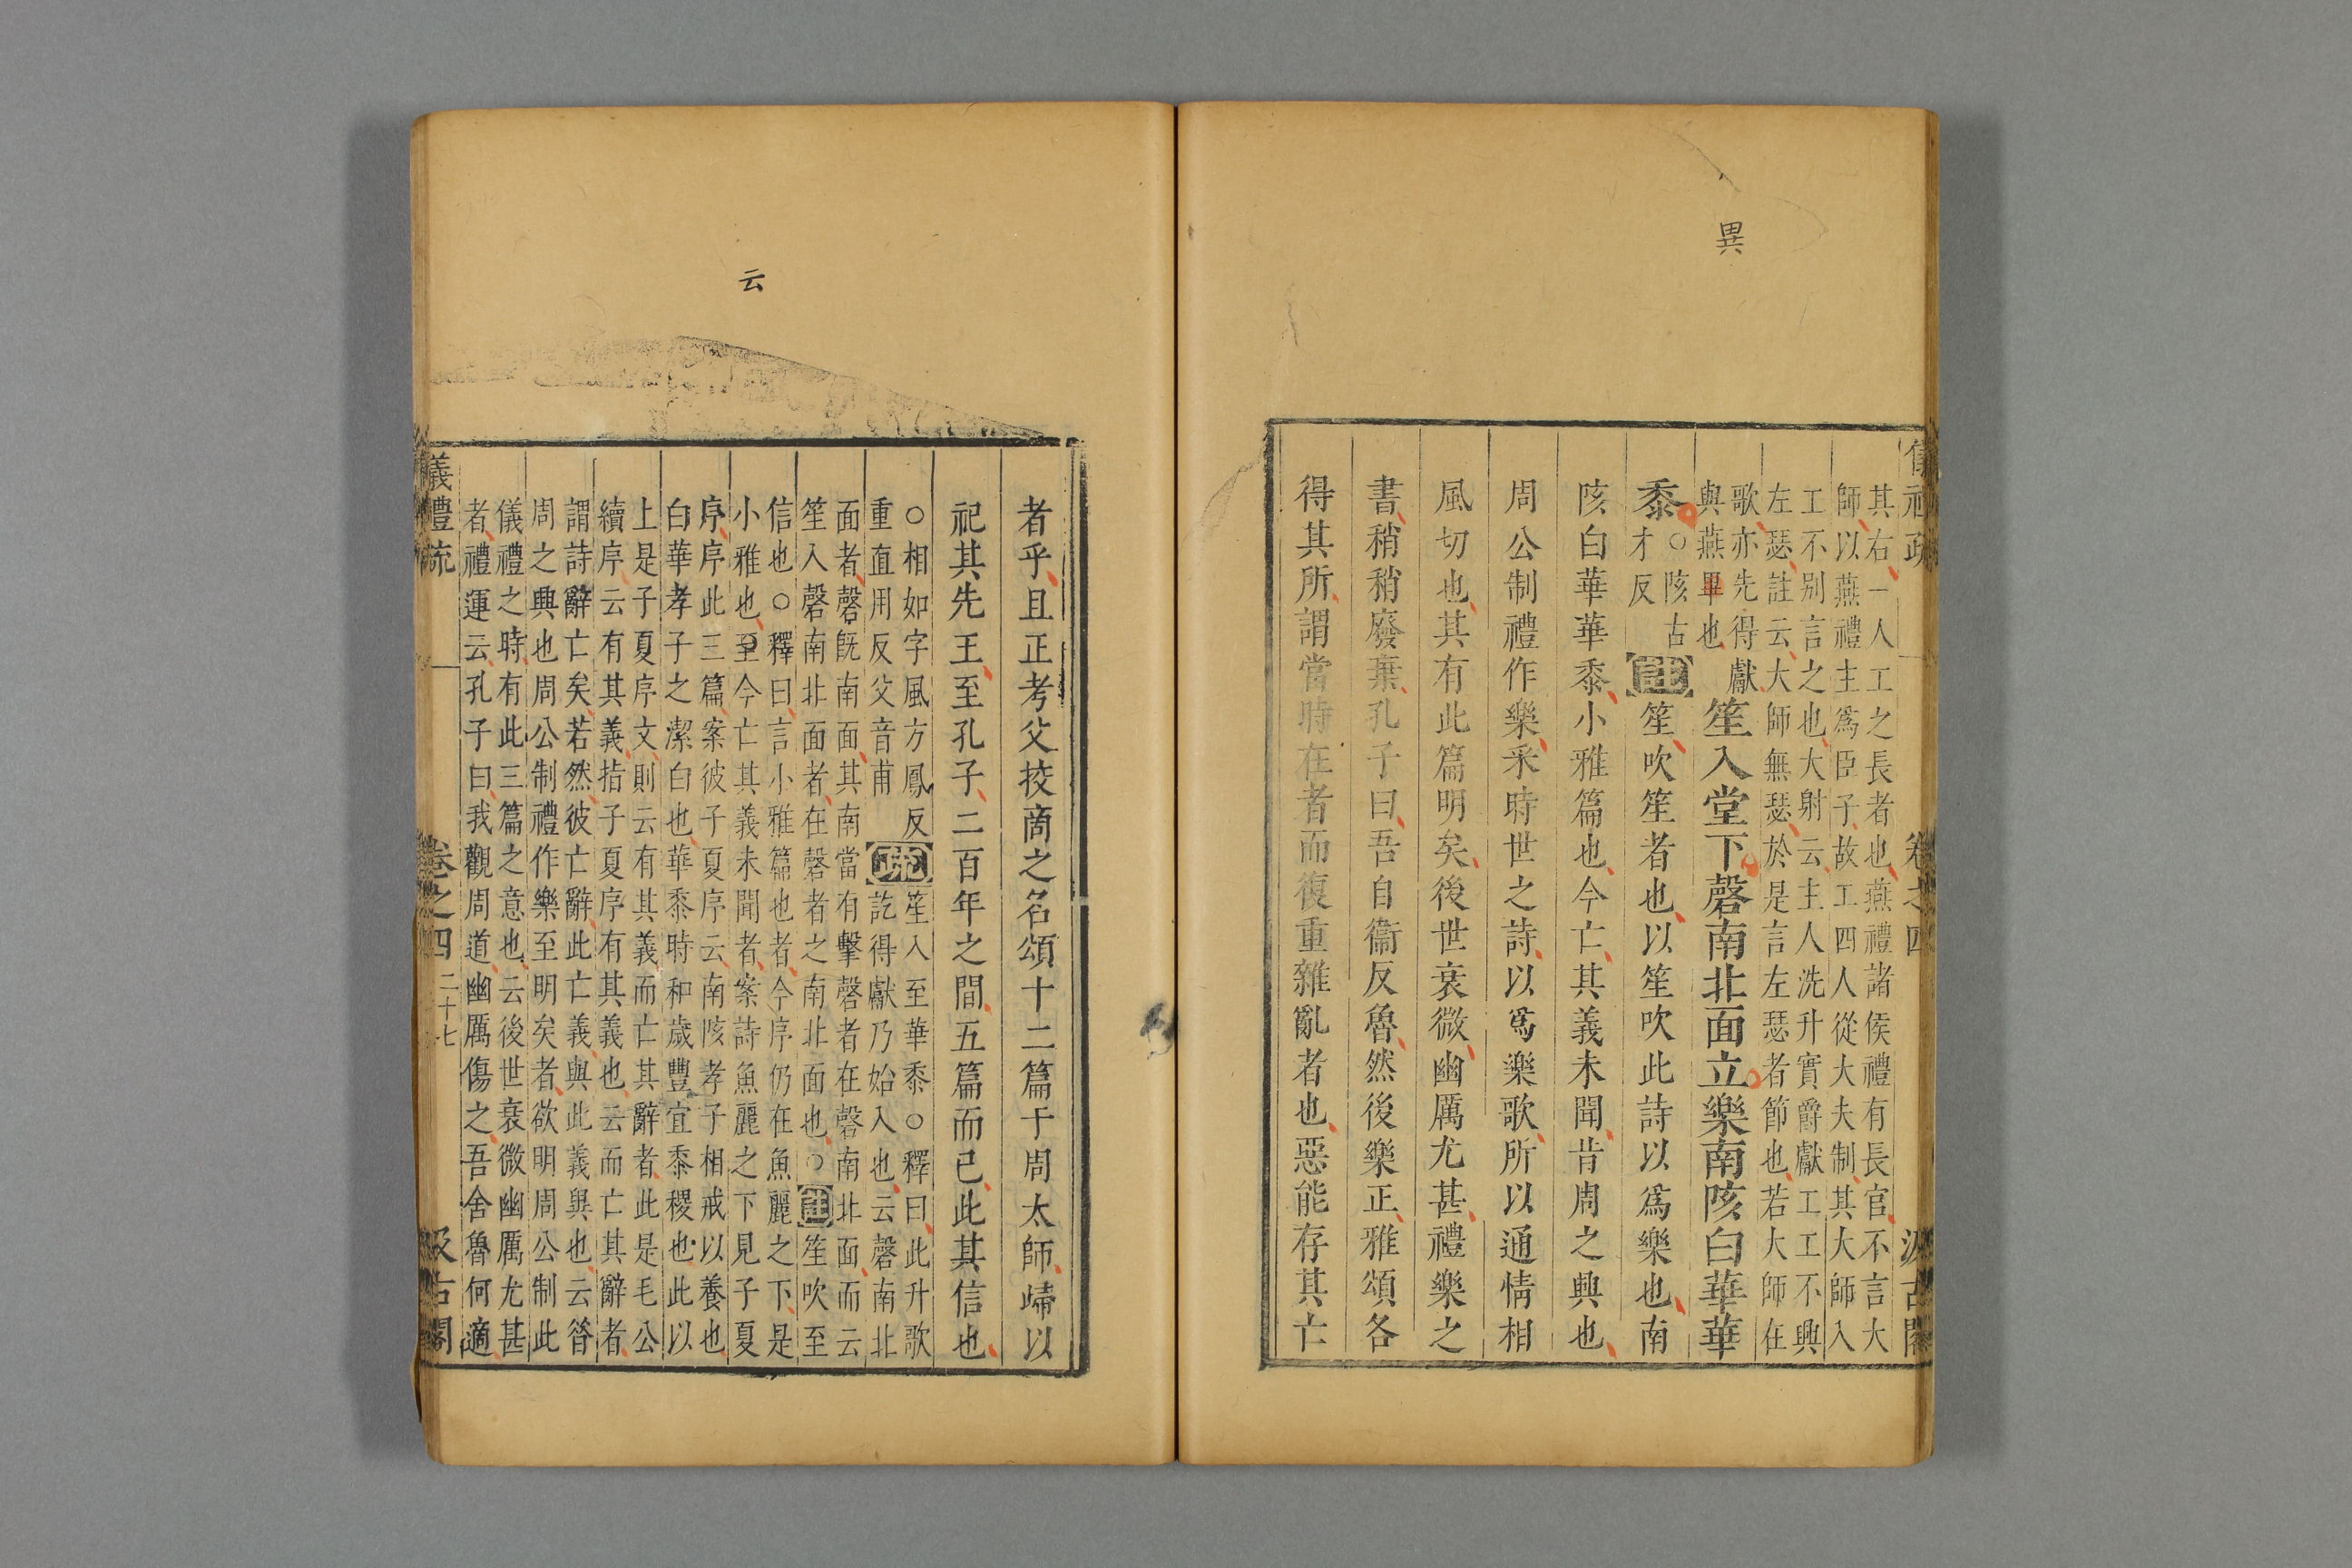 異
儀禮疏 卷之四 汲古閣
其右一人工之長者也燕禮諸侯禮有長官不言大
師以燕禮主爲臣子故工四人從大夫制其大師入
工不別言之也大射云主人洗升實爵獻工工不興
左瑟註云大師無瑟於是言左瑟者節也若大師在
歌亦先得獻
與燕異也
笙入堂下磬南北面立樂南陔白華華
黍
○陔古
才反
註
笙吹笙者也以笙吹此詩以爲樂也南
陔白華華黍小雅篇也今亡其義未聞昔周之興也
周公制禮作樂采時世之詩以爲樂歌所以通情相
風切也其有此篇明矣後世衰微幽厲尤甚禮樂之
書稍稍廢棄孔子曰吾自衞反魯然後樂正雅頌各
得其所謂當時在者而復重雜亂者也惡能存其亡
云
者乎且正考父挍商之名頌十二篇于周太師歸以
祀其先王至孔子二百年之間五篇而已此其信也
○相如字風方鳳反
重直用反父音甫
疏
笙入至華黍○釋曰此升歌
訖得獻乃始入也云磬南北
面者磬旣南面其南當有擊磬者在磬南北面而云
笙入磬南北面者在磬者之南北面也○註笙吹至
信也○釋曰言小雅篇也者今序仍在魚麗之下是
小雅也至今亡其義未聞者案詩魚麗之下見子夏
序序此三篇案彼子夏序云南陔孝子相戒以養也
白華孝子之潔白也華黍時和歲豐宜黍稷也此以
上是子夏序文則云有其義而亡其辭者此是毛公
續序云有其義指子夏序有其義也云而亡其辭者
謂詩辭亡矣若然彼亡辭此亡義與此義異也云昝
周之興也周公制禮作樂至明矣者欲明周公制此
儀禮之時有此三篇之意也云後世衰微幽厲尤甚
者禮運云孔子曰我觀周道幽厲傷之吾舍魯何適
儀禮疏 卷之四 二十七 汲古閣